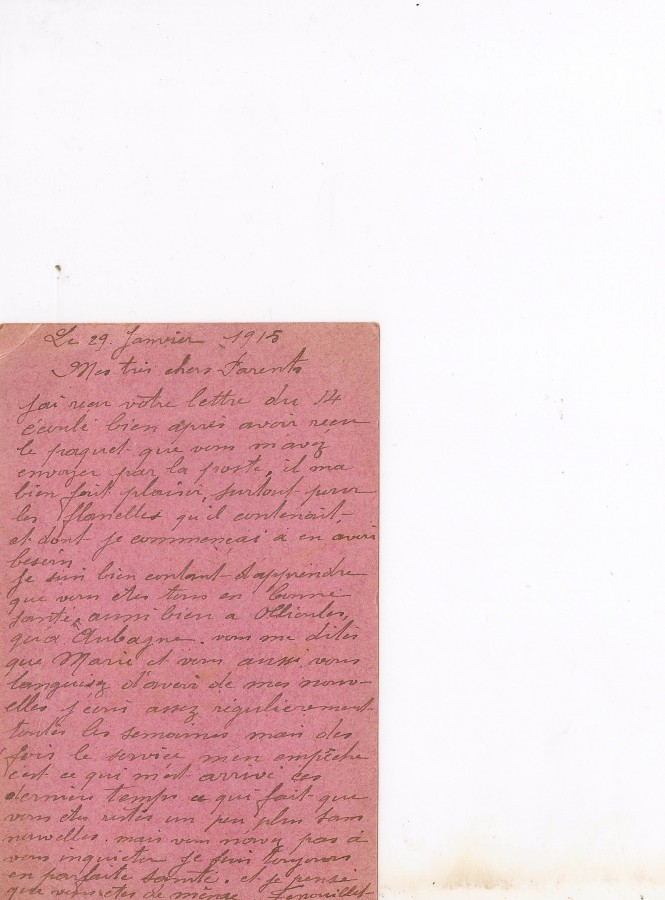 Le 29 Janvier 1915
Mes très chers Parents
J'ai reçu votre lettre du 14
écoulé bien après avoir reçu
le paquet que vous m'avez
envoyer par la poste, il m'a
bien fait plaisir, surtout pour
les flanelles qu'il contenait,
et dont je commençai a en avoir
besoin.
Je suis bien contant d'apprendre
que vous etes tous en bonne
santé, aussi bien a Ollioules,
qu'a Aubagne. vous me dites
que Marie et vous aussi vous
languisez d'avoir de mes nouv-
elles j'écris assez régulierement
toutes les semaines mais des
fois le service m'en empêche
c'est ce qui m'est arrivé ces
derniers temps ce qui fait que
vous etes restés un peu plus sans
nouvelles. mais vous n'avez pas à
vous inquieter je suis toujours
en parfaite santé. et je pense
que vous etes de même Fenouillet